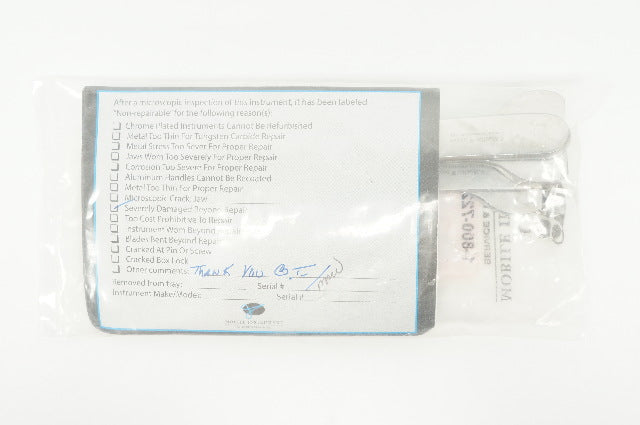 After a microscopic inspection of this instrument, it has been labeled
"Non-repairable" for the following reason(s):
Chrome Plated Instruments Cannot Be Refurbished
Metal Too Thin For Tungsten Carbide Repair
Metal Stress Too Sever For Proper Repair
Jaws Worn Too Severely For Proper Repair
Corrosion Too Severe For Proper Repair
Aluminum Handles Cannot Be Recoated
Metal Too Thin For Proper Repair
Microscopic Crack Jaw
Severely Damaged Beyond Repair
Too Cost Prohibitive To Repair
Instrument Worn Beyond Repair
Blades Bent Beyond Repair
Cracked At Pin Or Screw
Cracked Box Lock
Other comments: THANK YOU
Removed from tray: Serial #
Instrument Make/Model: Serial #
1-800-722
SERVICE &
MOBILE IN